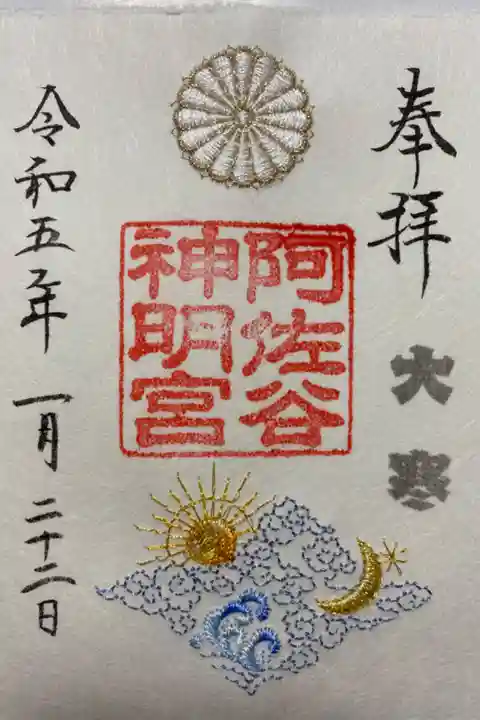 奉拝
大寒
阿佐谷
神明宮
令和五年一月二十二日